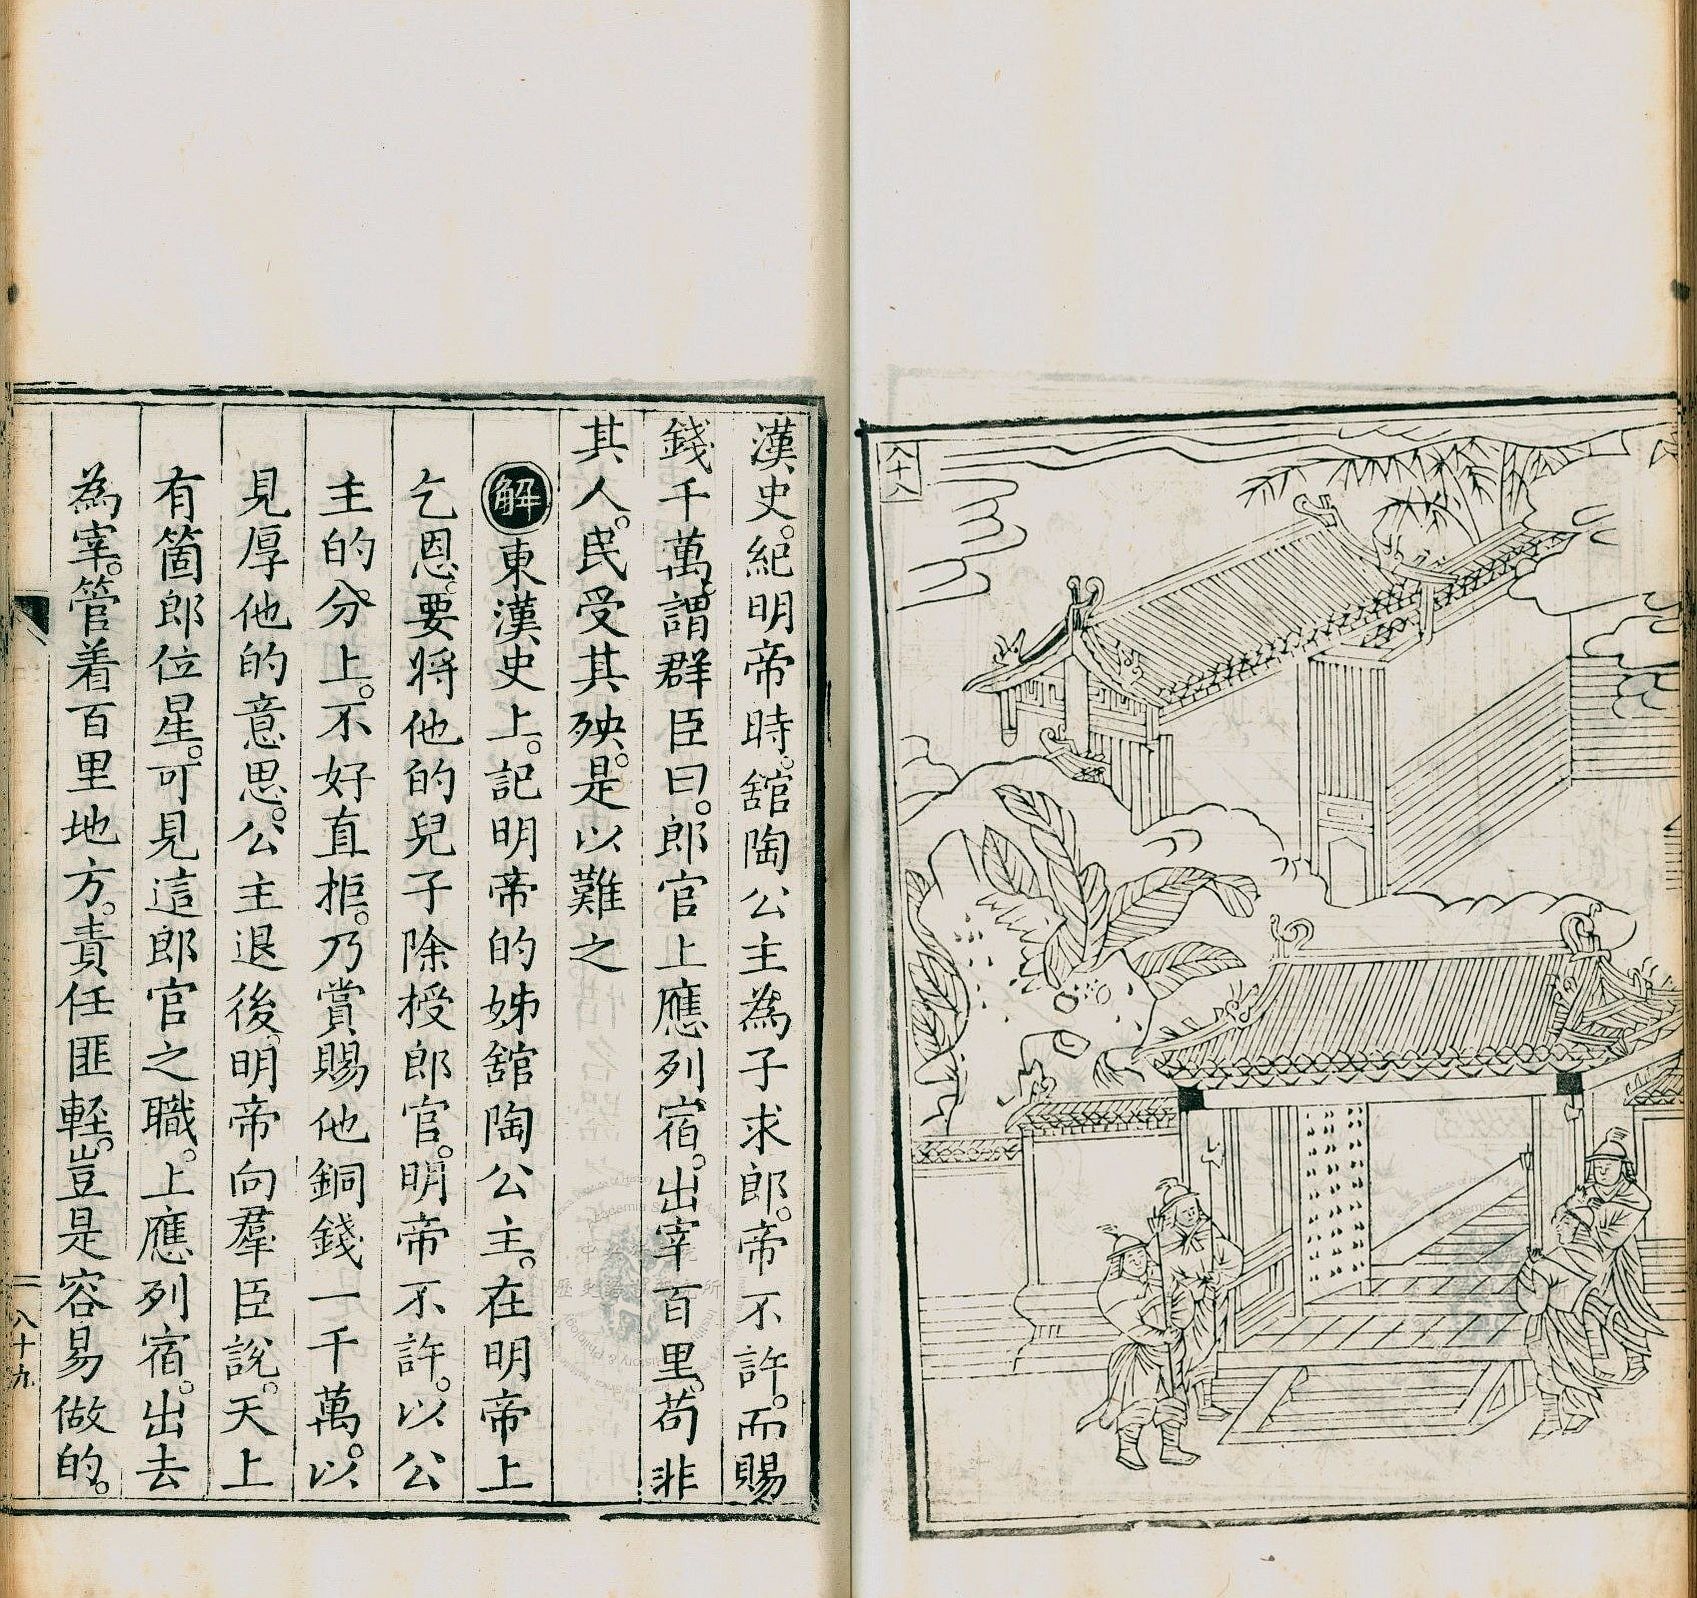 八十八
漢史。紀明帝時。舘陶公主為子求郎。帝不許。而賜
錢千萬。謂群臣曰。郎官上應列宿。出宰百里。苟非
其人。民受其殃。是以難之
解東漢史上。記明帝的姊舘陶公主。在明帝上
乞恩。要將他的兒子除授郎官。明帝不許。以公
主的分上。不好直拒。乃賞賜他銅錢一千萬。以
見厚他的意思。公主退後。明帝向羣臣說。天上
有箇郎位星。可見這郎官之職。上應列宿。出去
為宰。管着百里地方。責任匪輕。豈是容易做的。
八十九